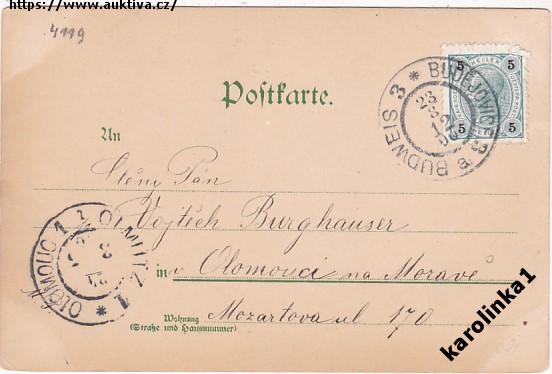 https://www.auktiva.cz/
4119
5 HELLER 5
5 5
BUDĚJOVICE 3 * BUDWEIS 3 *
23
Postkarte.
An
Ctěný Pán
Vojtěch Burghauser
in Olomouci na Moravě
Mozartova ul 170
Wohnung
(Straße und Hausnummer)
OLOMOUC 1 * OLMÜTZ 1 *
karolinka1